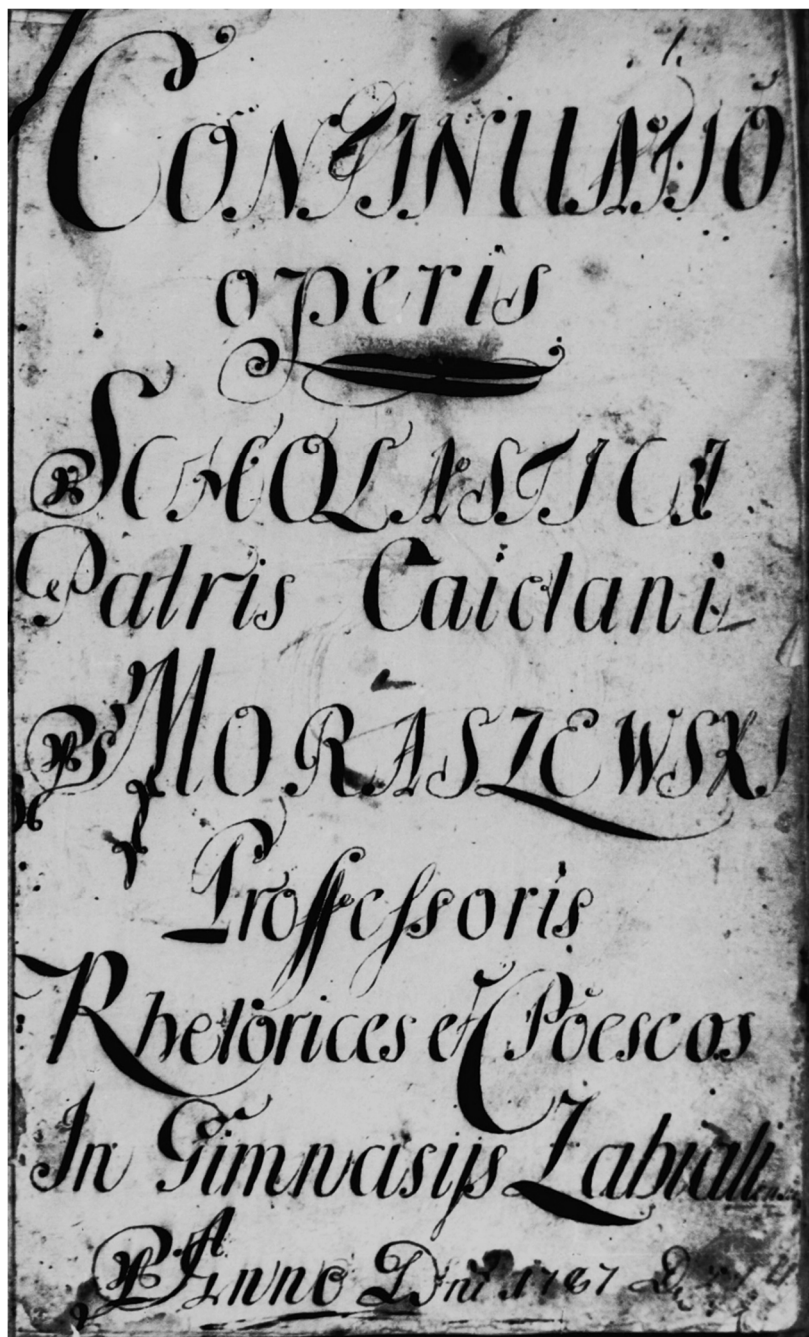 1.
CONTINUATIO
operis
SCHOLASTICI
Patris Caietani
MORASZEWSKI
Proffessoris
Rhetorices et Pŏeseos
In Gimnasijs Zabiali
Anno Dni 1787 D